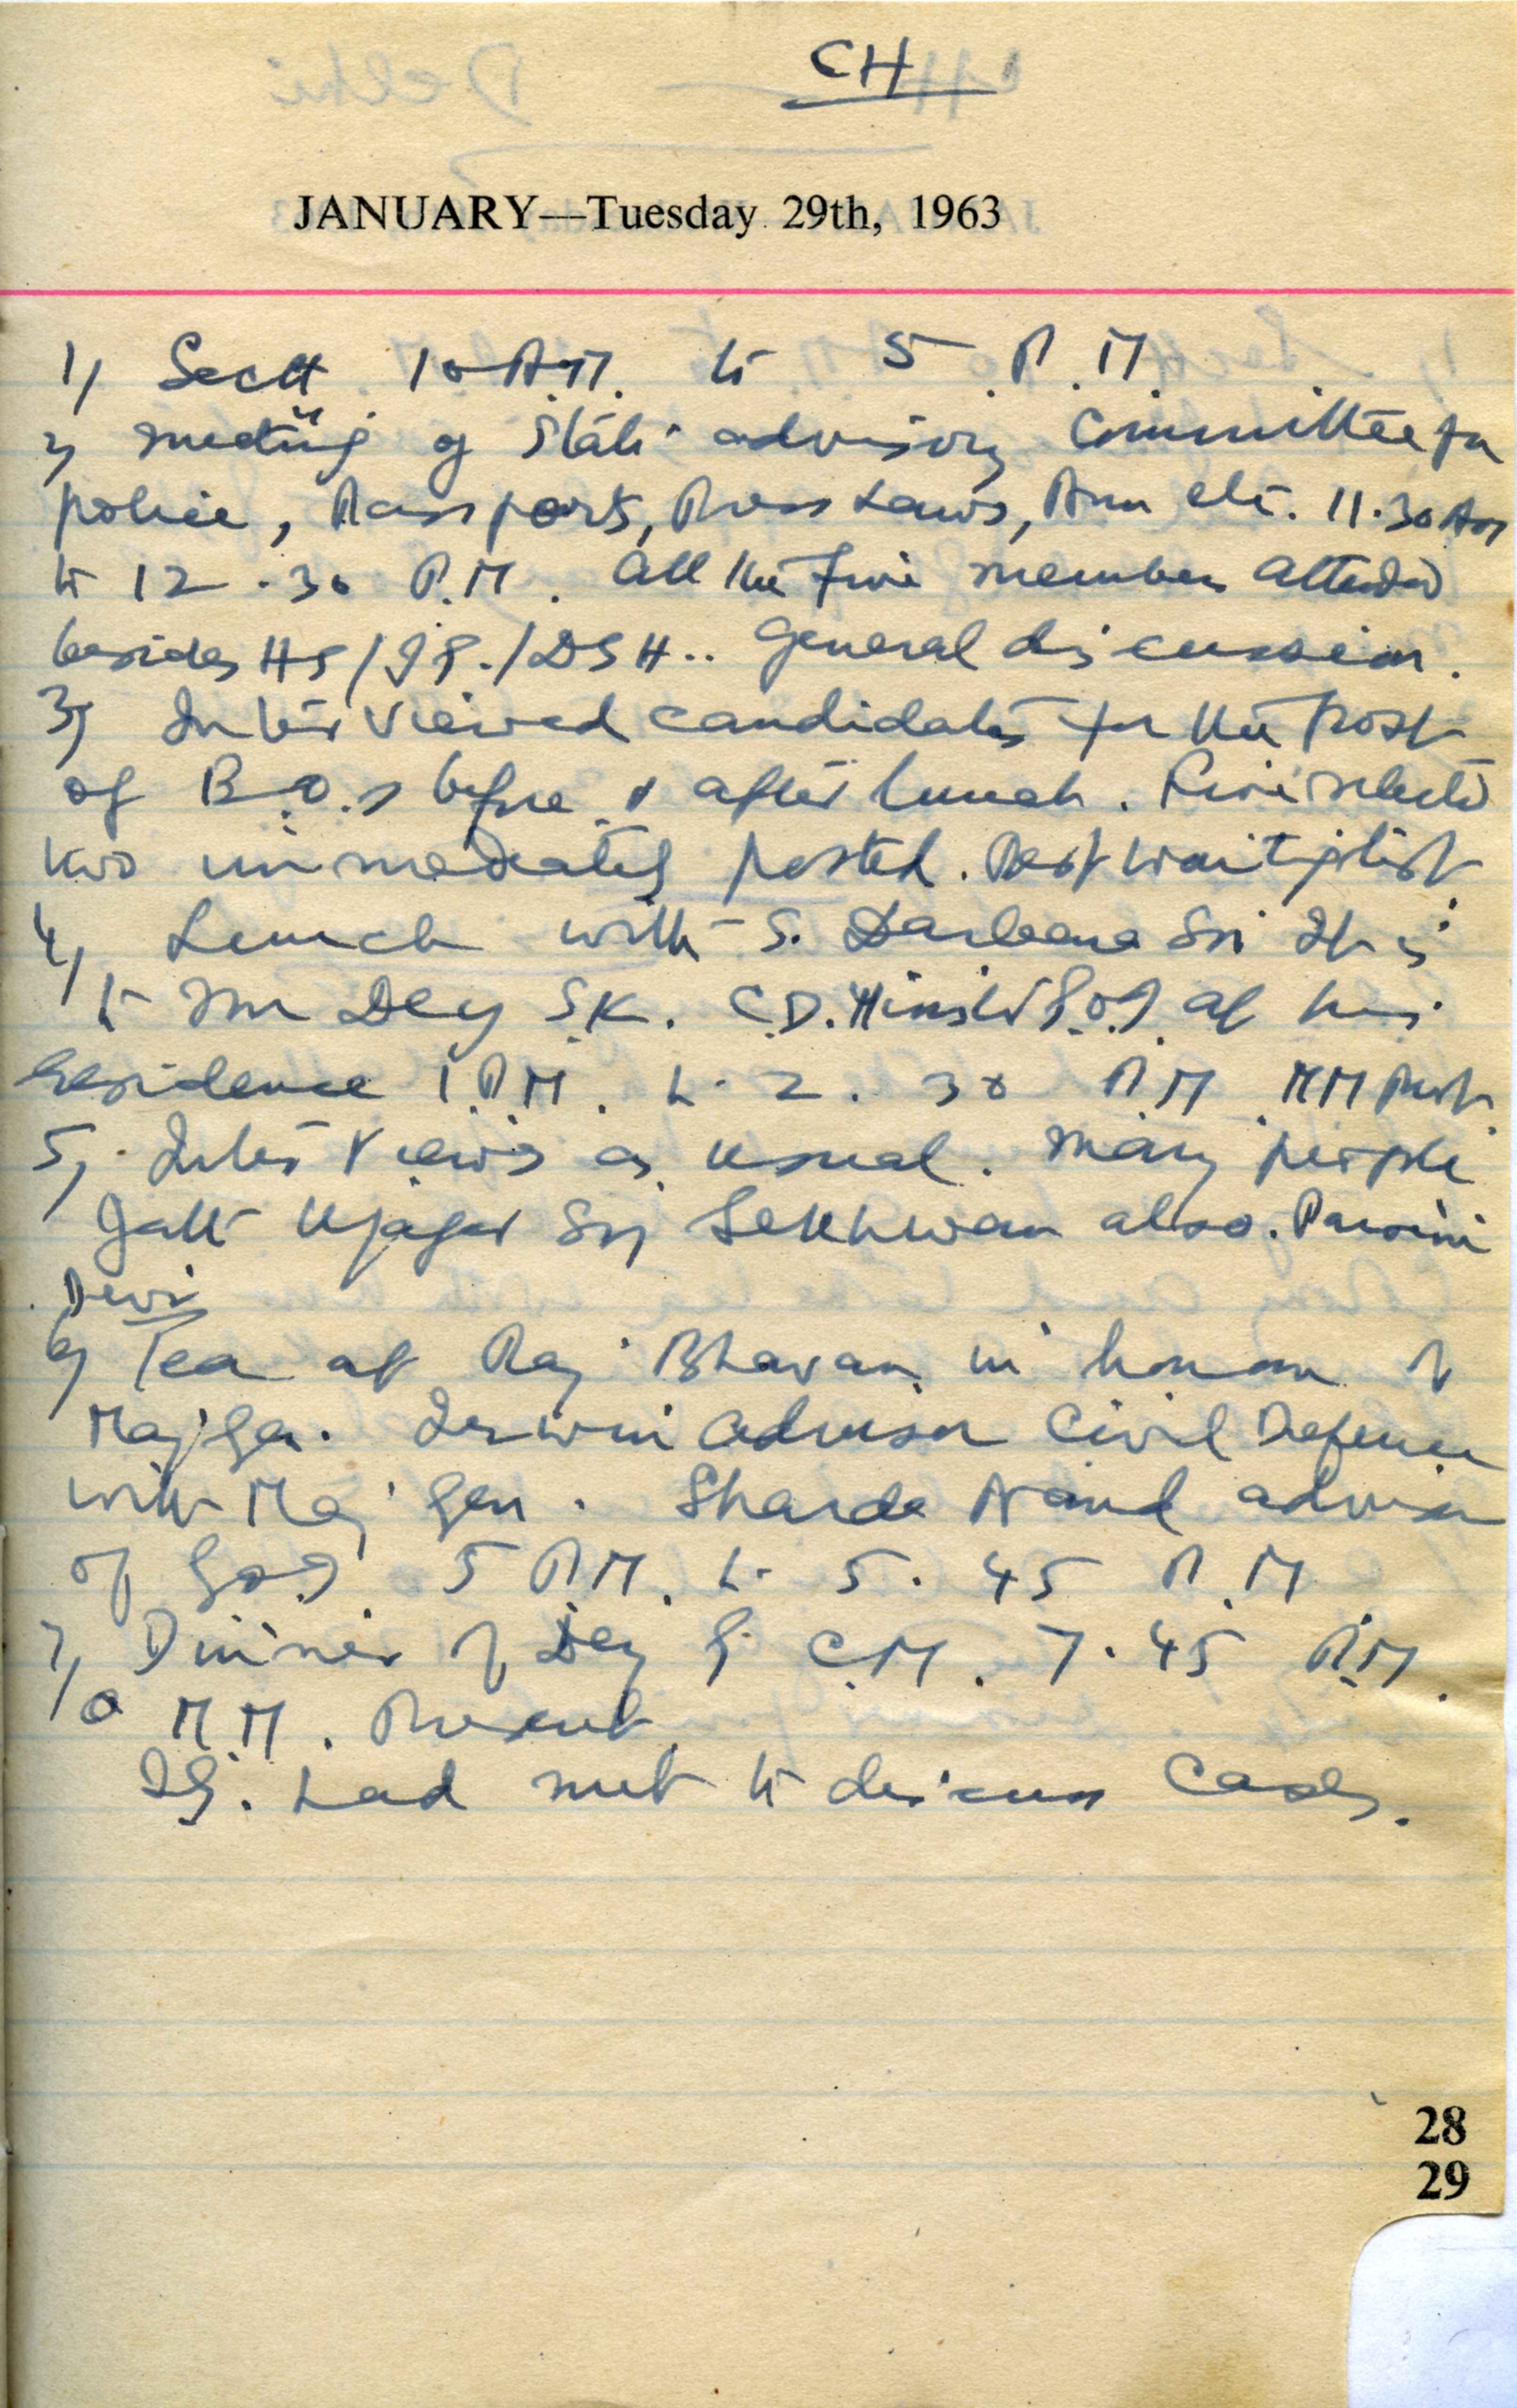 CH
JANUARY—Tuesday 29th, 1963
1) Sectt 10 A.M. to 5 P.M.
2) Meeting of State advisory Committee for
police, Passports, Press Laws, Arm etc. 11.30 AM
to 12.30 P.M. All the five members attended
besides HS/IG./DSH.. General discussion.
3) Interviewed candidates for the post
of B.O.s before & after lunch. Five selected
two immediately posted. Rest waiting list
4) Lunch with S. Darbara Singh
to Mr Dey S.K. C.D. Minister G.O.I at his
residence 1 P.M. to 2.30 P.M MM Prest.
5) Interviews as usual. Many people
Ujagar Sg Sekhwan also.
Devi
6) Tea at Raj Bhavan in honour of
Maj Gen. Irwin Advisor Civil Defence
with Maj Gen. Sharda Nand advisor
of G.O.I 5 P.M. to 5.45 P.M
7) Dinner of Dey by C.M. 7.45 P.M.
MM. Present
IG. had met to discuss cases.
28
29